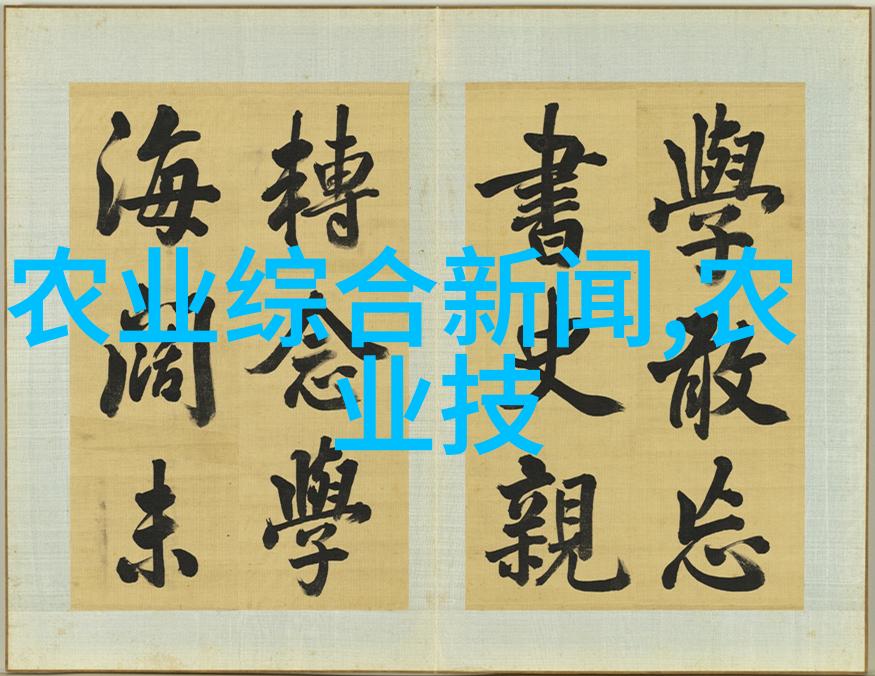 學敢忘
書史親
轉念學
海闊未
农业综合新闻,农
业技